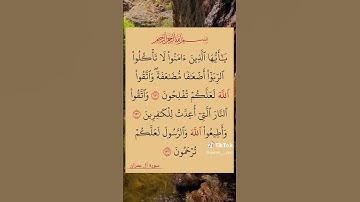 بسم الله الرحمن الرحيم
يَـٰٓأَيُّهَا ٱلَّذِينَ ءَامَنُوا۟ لَا تَأْكُلُوا۟
ٱلرِّبَوٰٓا۟ أَضْعَـٰفًا مُّضَـٰعَفَةً ۖ وَٱتَّقُوا۟
ٱللَّهَ لَعَلَّكُمْ تُفْلِحُونَ ۝ وَٱتَّقُوا۟
ٱلنَّارَ ٱلَّتِىٓ أُعِدَّتْ لِلْكَـٰفِرِينَ ۝
وَأَطِيعُوا۟ ٱللَّهَ وَٱلرَّسُولَ لَعَلَّكُمْ
تُرْحَمُونَ ۝
سورة آل عمران
TikTok